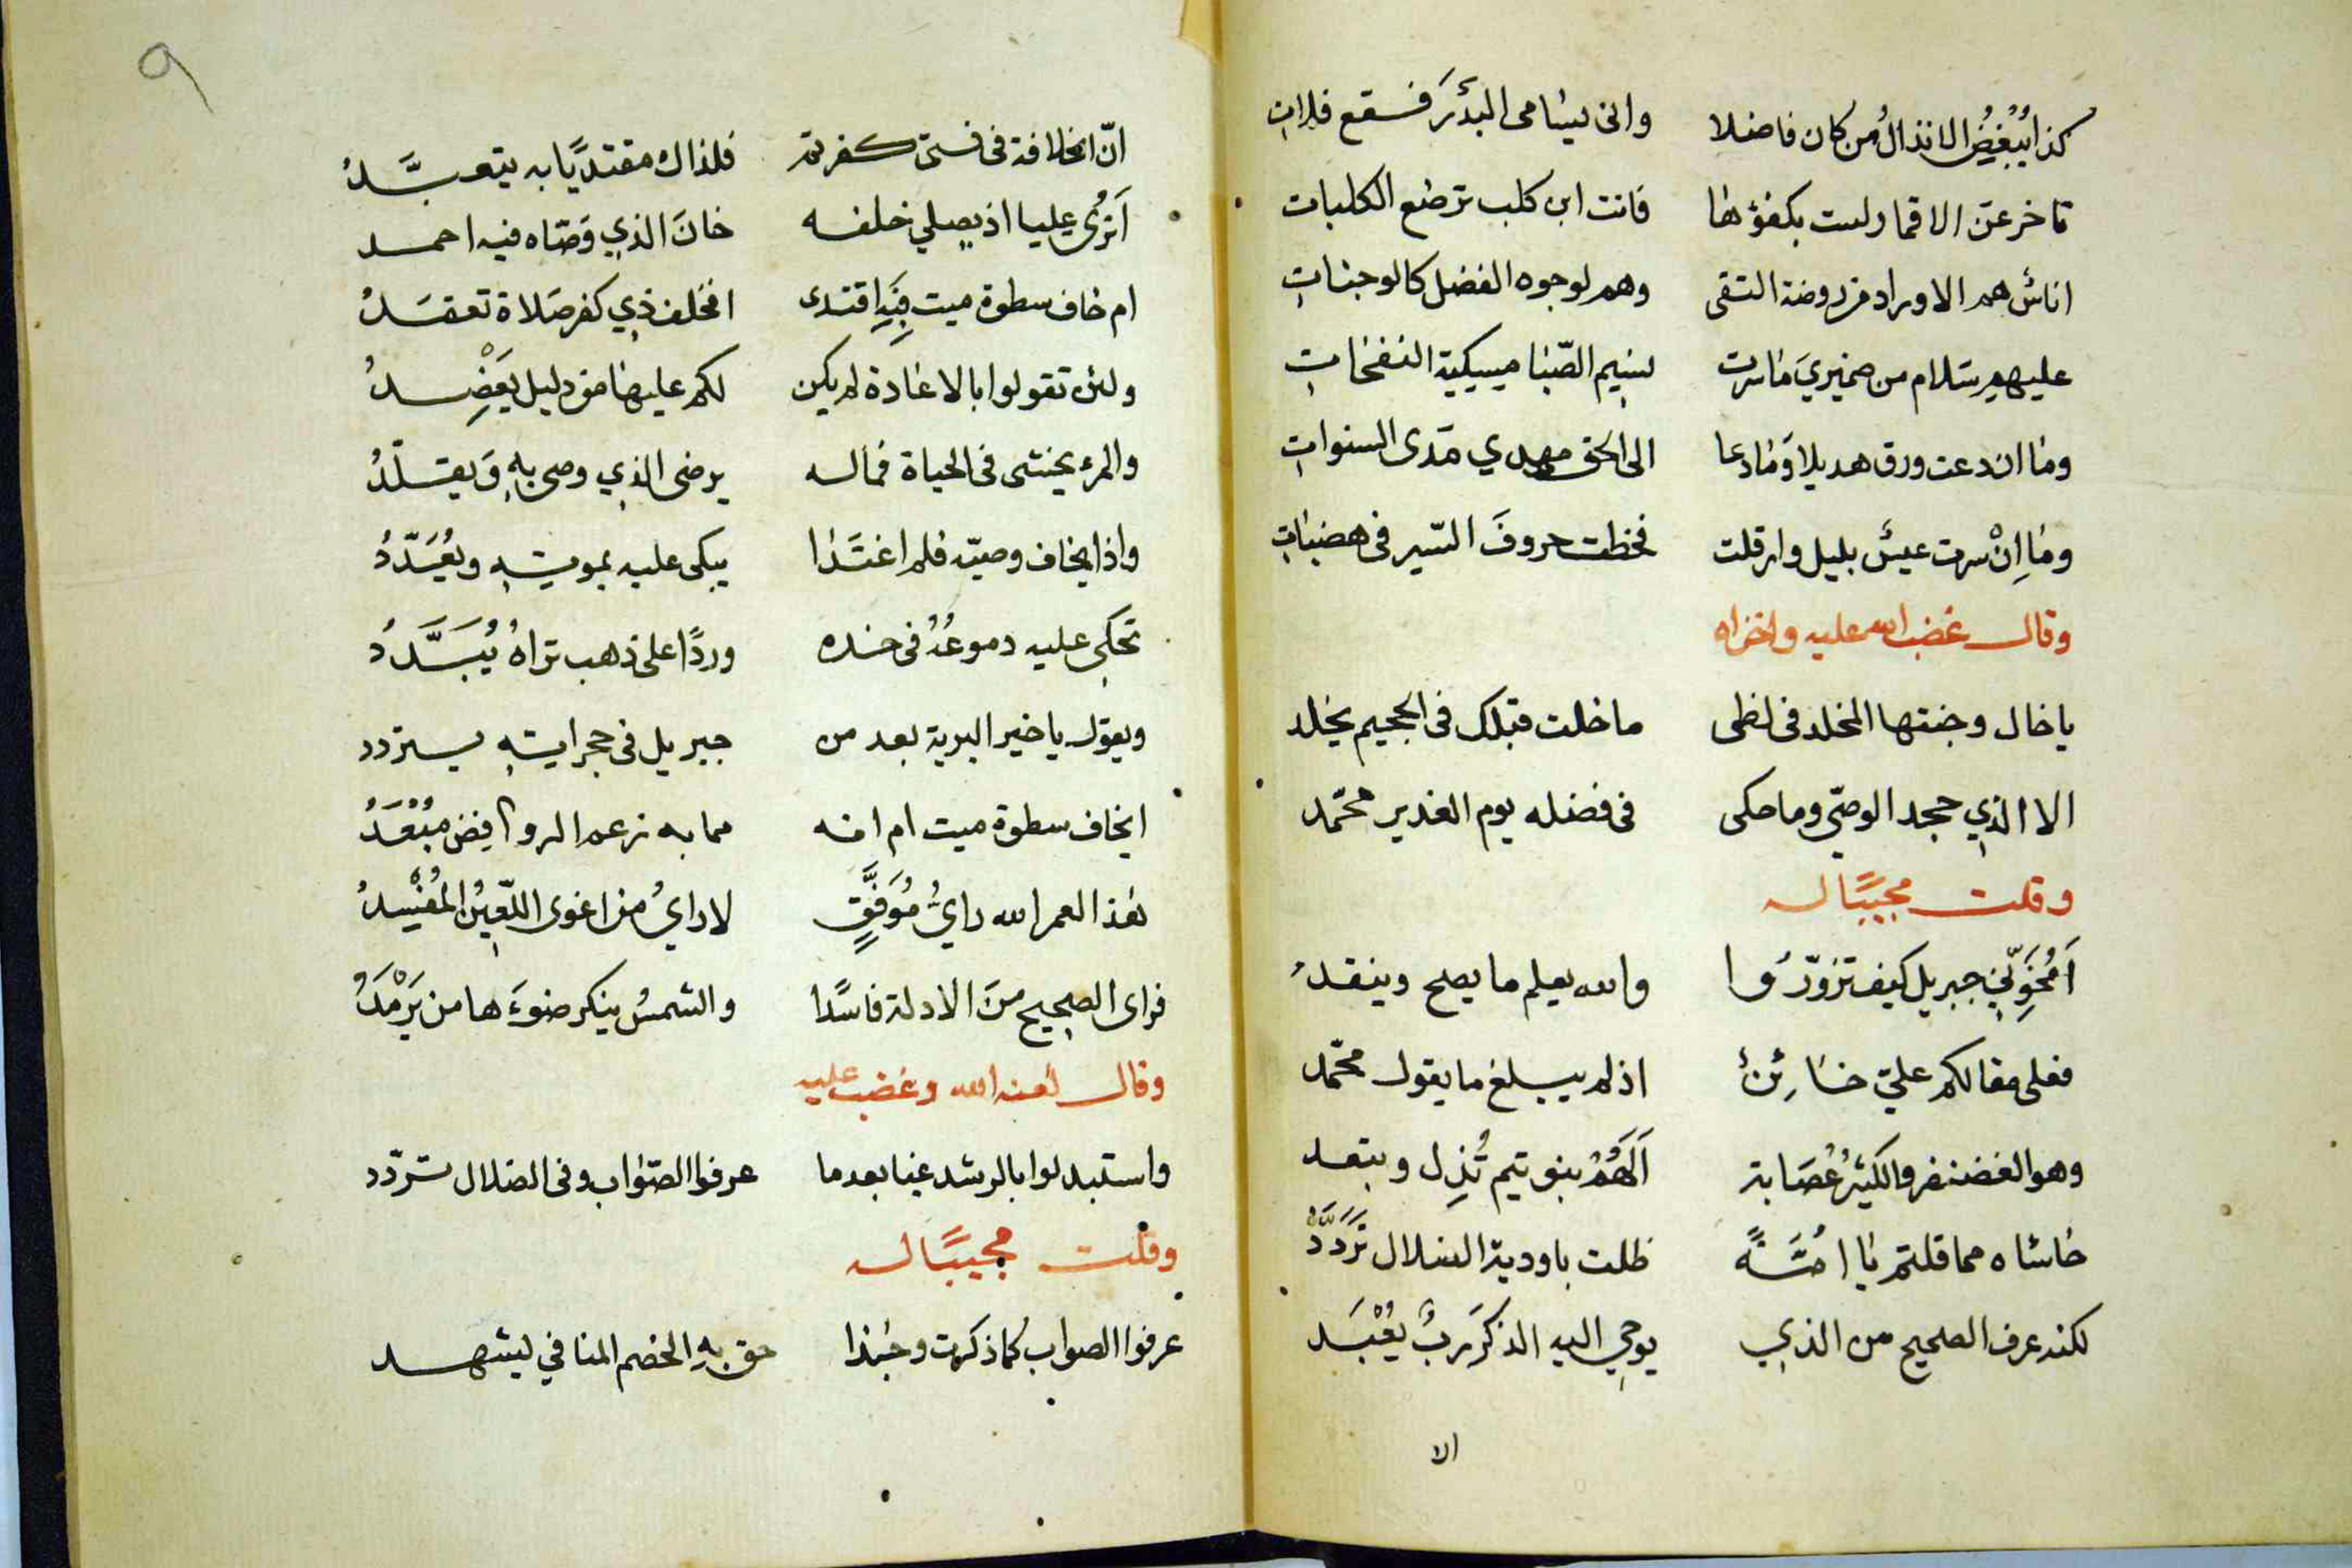 كذا يُبغِضُ الانذالُ من كان فاضلا وانى يسامى البدرَ فسقع فلات
تاخر عن الاقمار لست بكفؤها فانت ابن كلب ترضع الكلبات
اناسٌ هم الاوراد من روضة التقى وهم لوجوه الفضل كالوجنات
عليهم سلام من ضميريَ ما سرت نسيم الصّبا ميسكية النفخات
وما ان دعت ورق هديلا وَما دعا الى الحق مهدي مَدى السنوات
وما اِنْ سرت عيسٌ بليل وارقلت فخطت حروفَ السّير فى هضبات
وقال غضب الله عليه واخزاه
يا خال وجنتها المخلد فى لظى ما خلت قبلك فى الجحيم يخلد
الا الذي جحد الوصىّ وما حكى فى فضله يوم الغدير محمّد
وقلت مجيبًا له
اَمُخَوِّنِي جبريل كيف تزوّرُوا والله يعلم ما يصح وينقدُ
فعلى مقالكم عليّ خائِنٌ اذ لم يبلغ ما يقول محمّد
وهو الغضنفر والكثيرُ عُصَابة اَلَهُمْ بنو تيم تُذِل وتبعد
حاشاه مما قلتم يا امَّةً ظلت باودية الضلال تَرَدَّدُ
لكنه عرف الصحيح من الذي يوحِي اليه الذكرَ ربٌ يُعْبَد
الا
٩
انّ الخلافة فى فستى كفرتم فلذاك مقتديًا به يتعبَّدُ
اَتُرى عليا اذ يصلي خلفه خانَ الذي وَصّاه فيه احمد
ام خاف سطوة ميت فِيَهِ اقتدى افخلف ذي كفر صَلاة تعقدُ
ولئن تقولوا بالاعادة لم يكن لكم عليها من دليل يَعْضِدُ
والمرء يخشى فى الحياة فما له يرضى الذي وصى بِهِ وَيقلّدُ
واذا يخاف وصيّه فلم اغتَدا يبكى عليه بموتِهِ ويُعَدّدُ
تحكى عليه دموعُهُ فى خده وردًا على ذهب تراهُ يُبَدَّدُ
ويقول يا خير البرية بعد من جبريل فى حجراتِهِ يتردد
ايخاف سطوة ميت ام انه مما به زعم الروافِض مُبْعَدُ
هذا لعمر الله رايٌ مُوَفَّقٍ لا رايُ من اغوى اللّعِينُ المُفْسِدُ
فراى الصحيح منَ الادلة فاسدًا والشمسُ ينكر ضوءَها من يَرْمَدُ
وقال لعنه الله وغضب عليه
واستبدلوا بالرشد غيا بعد ما عرفوا الصّواب وفى الضلال تردّد
وقلت مجيبًا له
عرفوا الصواب كما ذكرت وحبذا حق بِهِ الخصم المنافي ليشهد